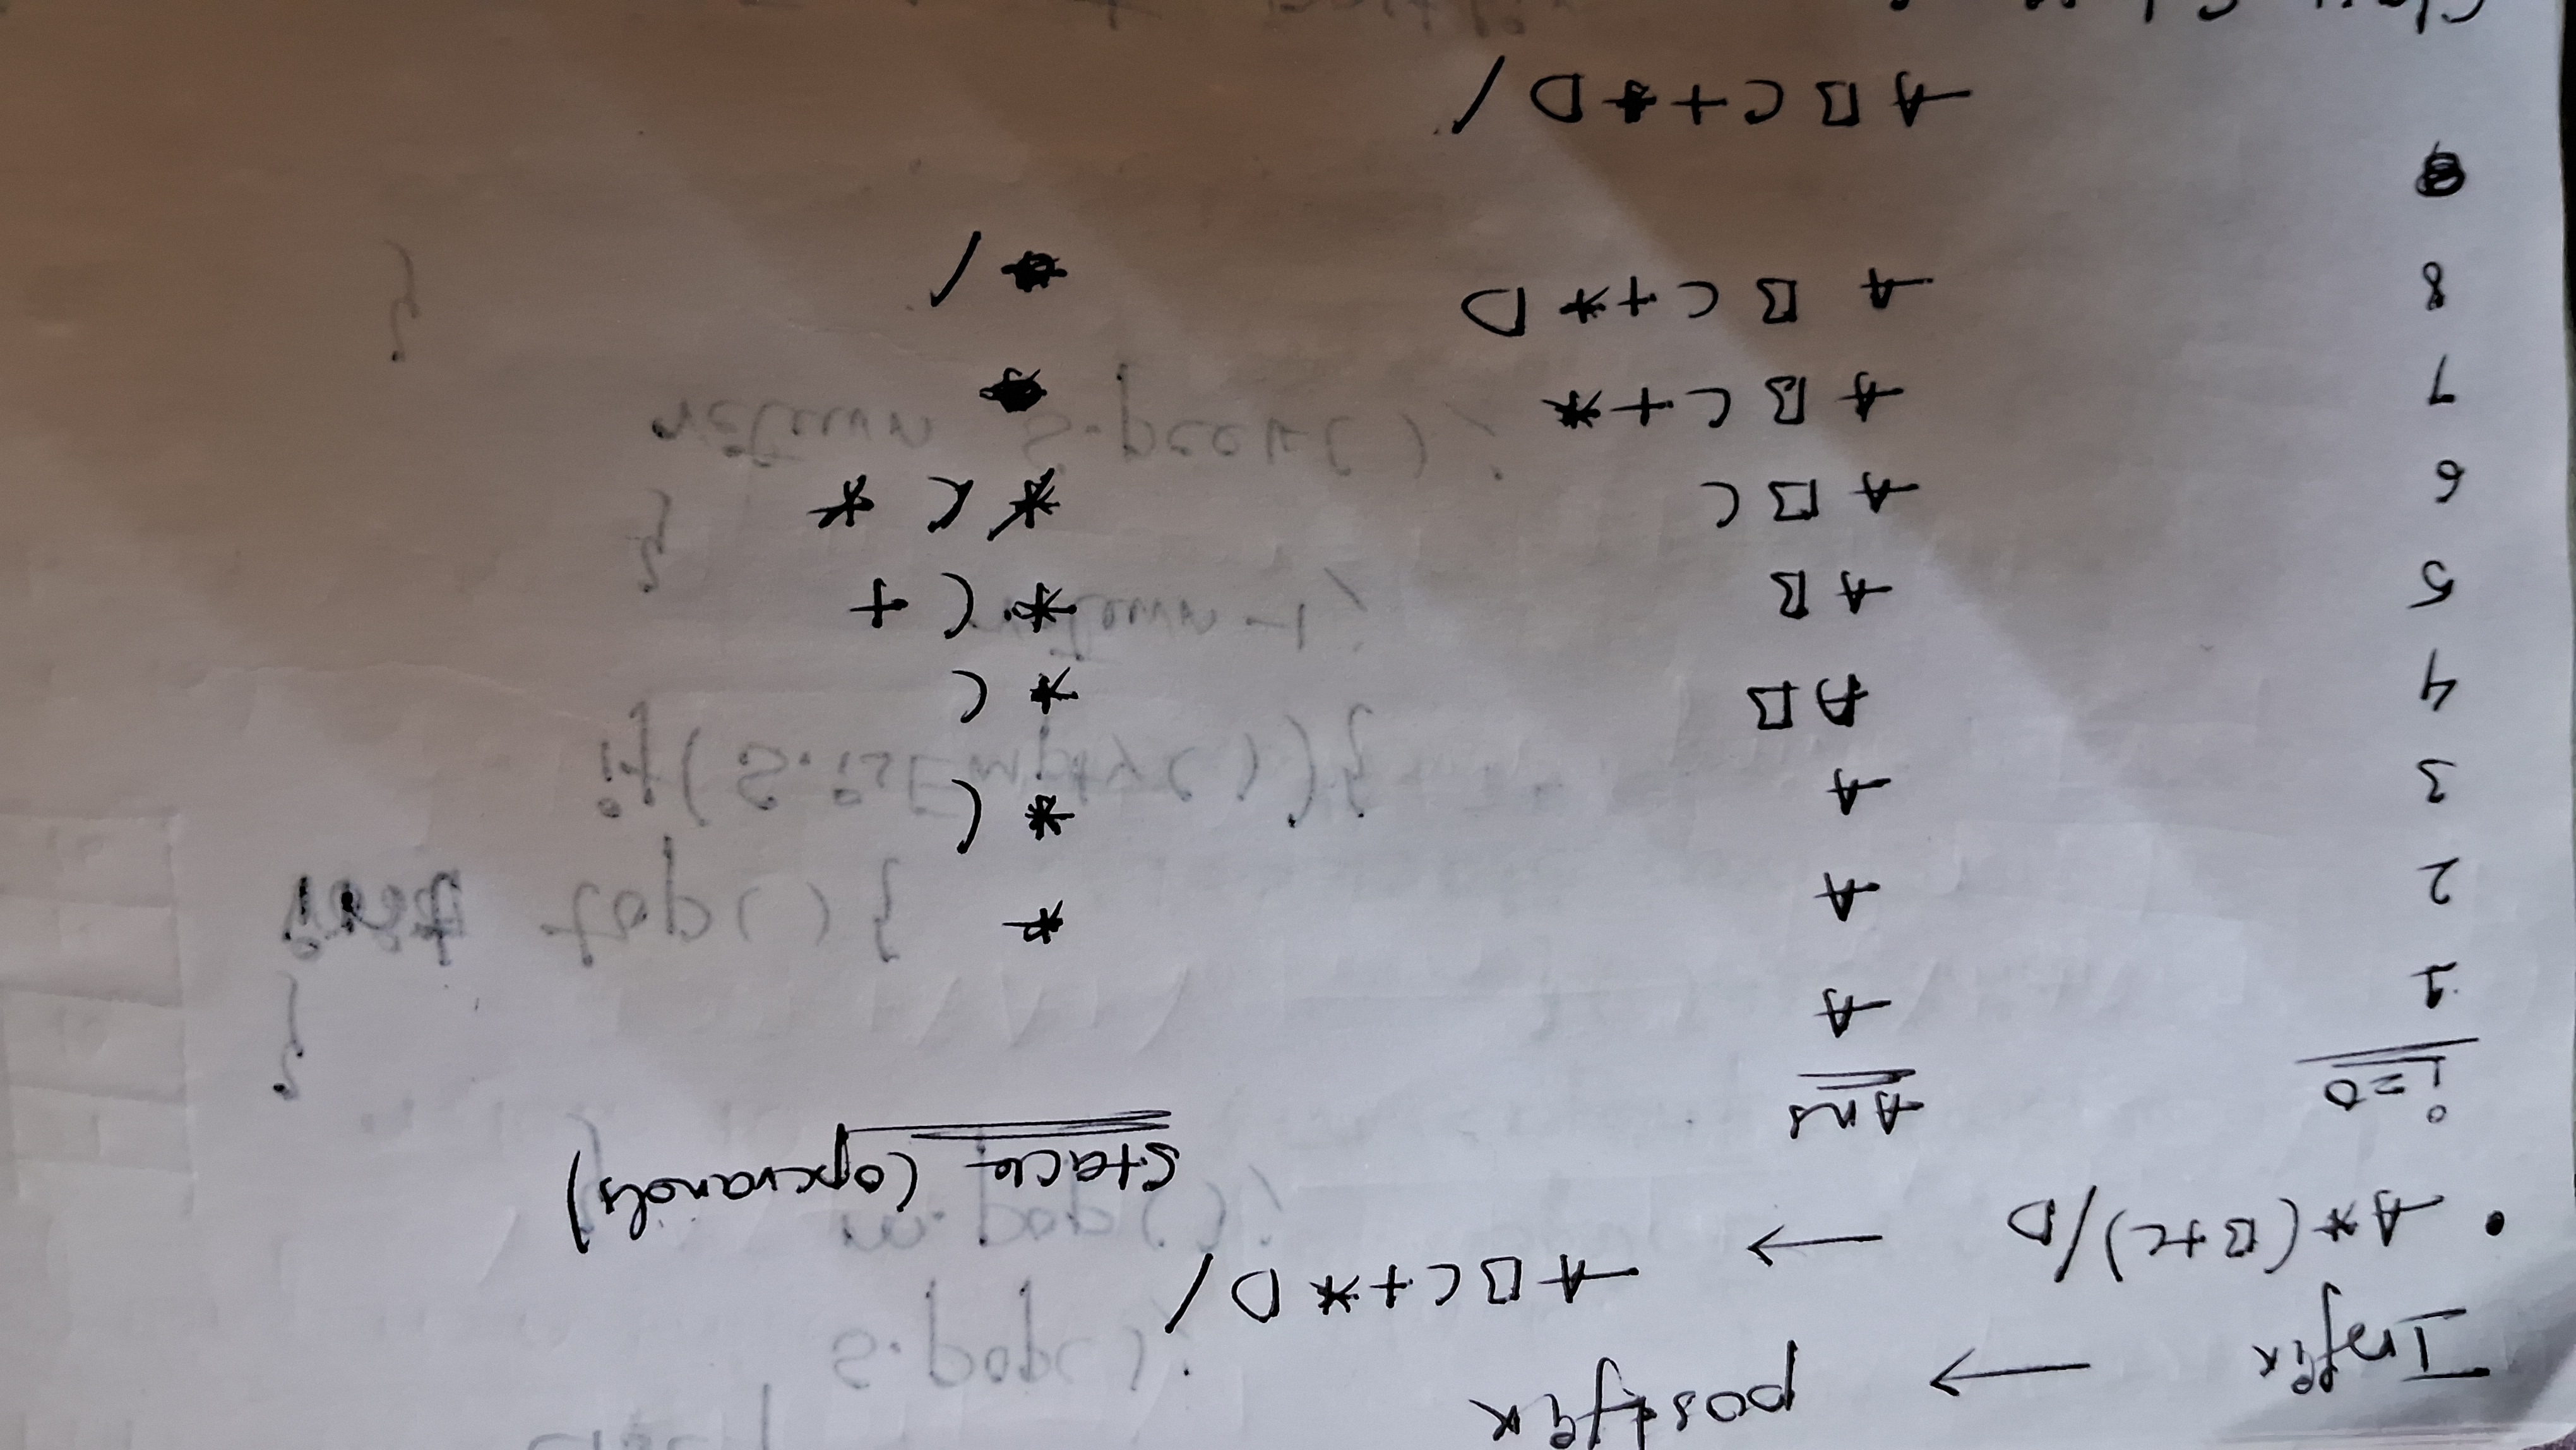 Infix → postfix
• A*(B+C)/D → ABC+*D/
i=0 Ans Stack (operands)
1 A
2 A *
3 A * (
4 AB * (
5 AB * ( +
6 ABC * ( *
7 ABC+*
8 ABC+*D /
ABC+*D/